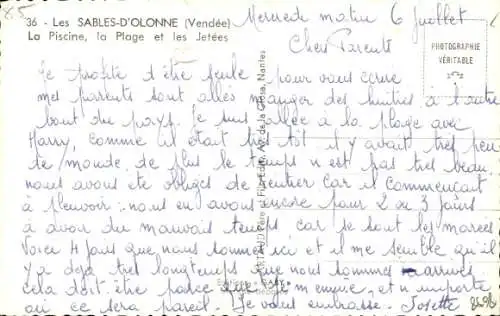 85
36 - Les SABLES-D'OLONNE (Vendée)
La Piscine, la Plage et les Jetées
PHOTOGRAPHIE VÉRITABLE
Mercredi matin 6 Juillet
Chers Parents
Je profite d'être seule pour vous écrire
mes parents sont allés manger des huitres à l'autre
bout du pays. Je suis allée à la plage avec
Mamy, comme il était très tôt il y avait très peu
de monde de plus le temps n'est pas très beau.
nous avons été obligés de rentrer car il commençait
à pleuvoir. nous en avons encore pour 2 ou 3 jours
à avoir du mauvais temps car se sont les marées
voici 4 jours que nous sommes ici et il me semble qu'il
y a déjà très longtemps que nous sommes arrivés
cela doit être parce que je m'ennuie, et n'importe
où ce sera pareil. Je vous embrasse. Josette
ARTAUD Père et Fils, Edit., Av. de la Close, Nantes